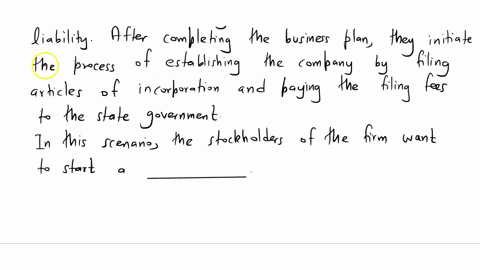 liability. After completing the business plan, they initiate
the process of establishing the company by filing
articles of incorporation and paying the filing fees
to the state government.
In this scenario, the stockholders of the firm want
to start a __________.